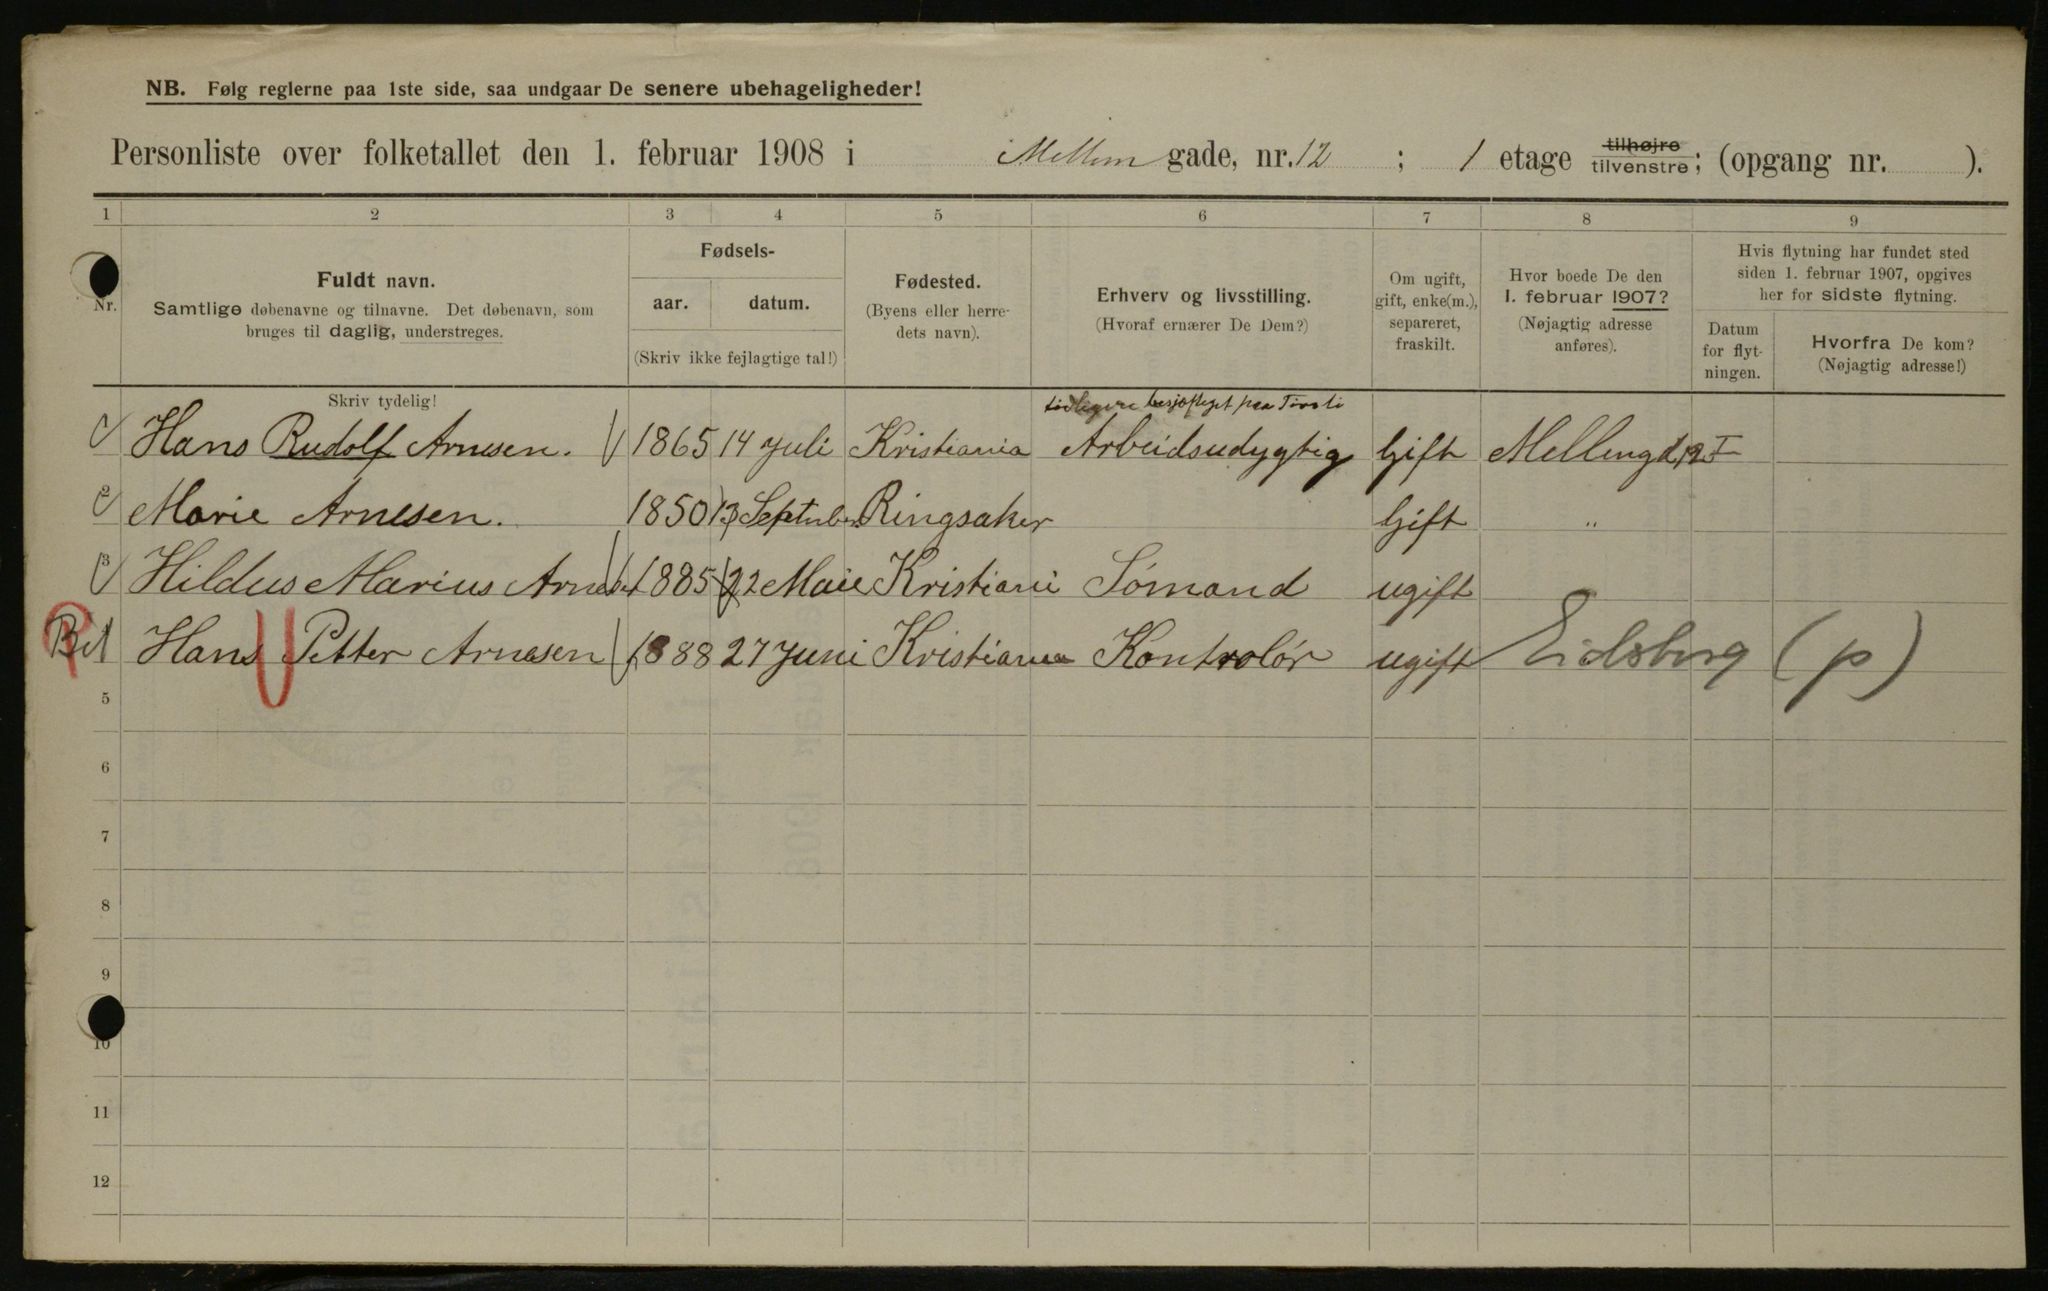 NB. Følg reglerne paa 1ste side, saa undgaar De senere ubehageligheder!
Personliste over folketallet den 1. februar 1908 i Mellem gade, nr. 12 ; 1 etage tilhøjre tilvenstre; (opgang nr. ).
1 2 3 4 5 6 7 8 9
Nr.
Fuldt navn.
Samtlige døbenavne og tilnavne. Det døbenavn, som
bruges til daglig, understreges.
Skriv tydelig!
Fødsels-
aar. datum.
(Skriv ikke fejlagtige tal!)
Fødested.
(Byens eller herre-
dets navn).
Erhverv og livsstilling.
(Hvoraf ernærer De Dem?)
Om ugift,
gift, enke(m.),
separeret,
fraskilt.
Hvor boede De den
1. februar 1907?
(Nøjagtig adresse
anføres).
Hvis flytning har fundet sted
siden 1. februar 1907, opgives
her for sidste flytning.
Datum
for flyt-
ningen.
Hvorfra De kom?
(Nøjagtig adresse!)
tidligere besjæftiget paa Tivoli
Hans Rudolf Arnesen. 1865 14 Juli Kristiania Arbeidsudygtig Gift Mellemgd 12 I
2 Marie Arnesen. 1850 13 September Ringsaker Gift "
3 Hildus Marius Arnesen 1885 22 Maie Kristiani Sömand ugift
Hans Petter Arnesen 1888 27 Juni Kristiania Kontrolör ugift Eidsberg (p)
5
6
7
8
9
10
11
12